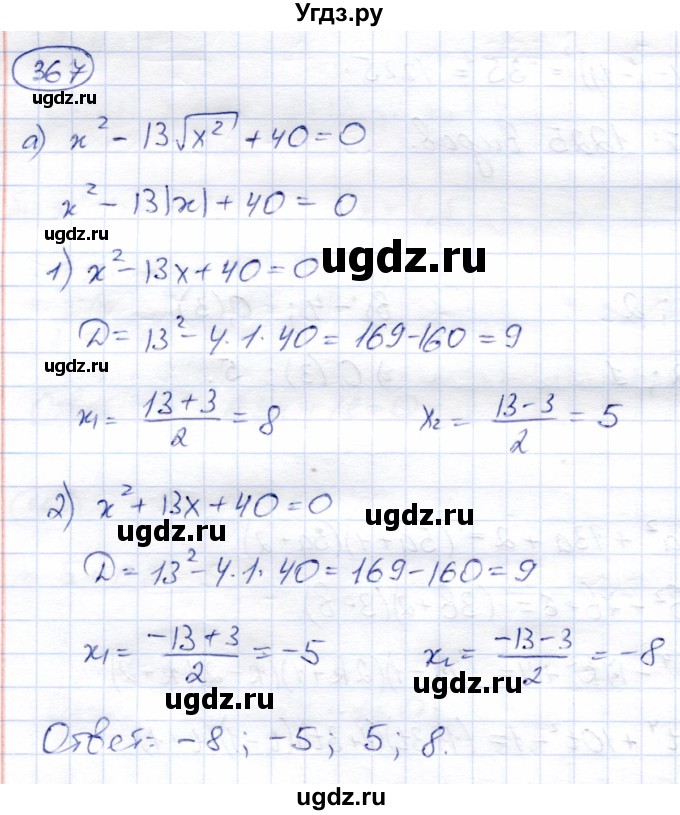 Угдз.ру
367
ugdz.ru
а) x² - 13√x² + 40 = 0
x² - 13|x| + 40 = 0
ugdz.ru
ugdz.ru
1) x² - 13x + 40 = 0
D = 13² - 4·1·40 = 169 - 160 = 9
ugdz.ru
x₁ = (13+3)/2 = 8 x₂ = (13-3)/2 = 5
2) x² + 13x + 40 = 0
ugdz.ru ugdz.ru
D = 13² - 4·1·40 = 169 - 160 = 9
x₁ = (-13+3)/2 = -5 x₂ = (-13-3)/2 = -8
ugdz.ru ugdz.ru
Ответ: -8; -5; 5; 8.
ugdz.ru